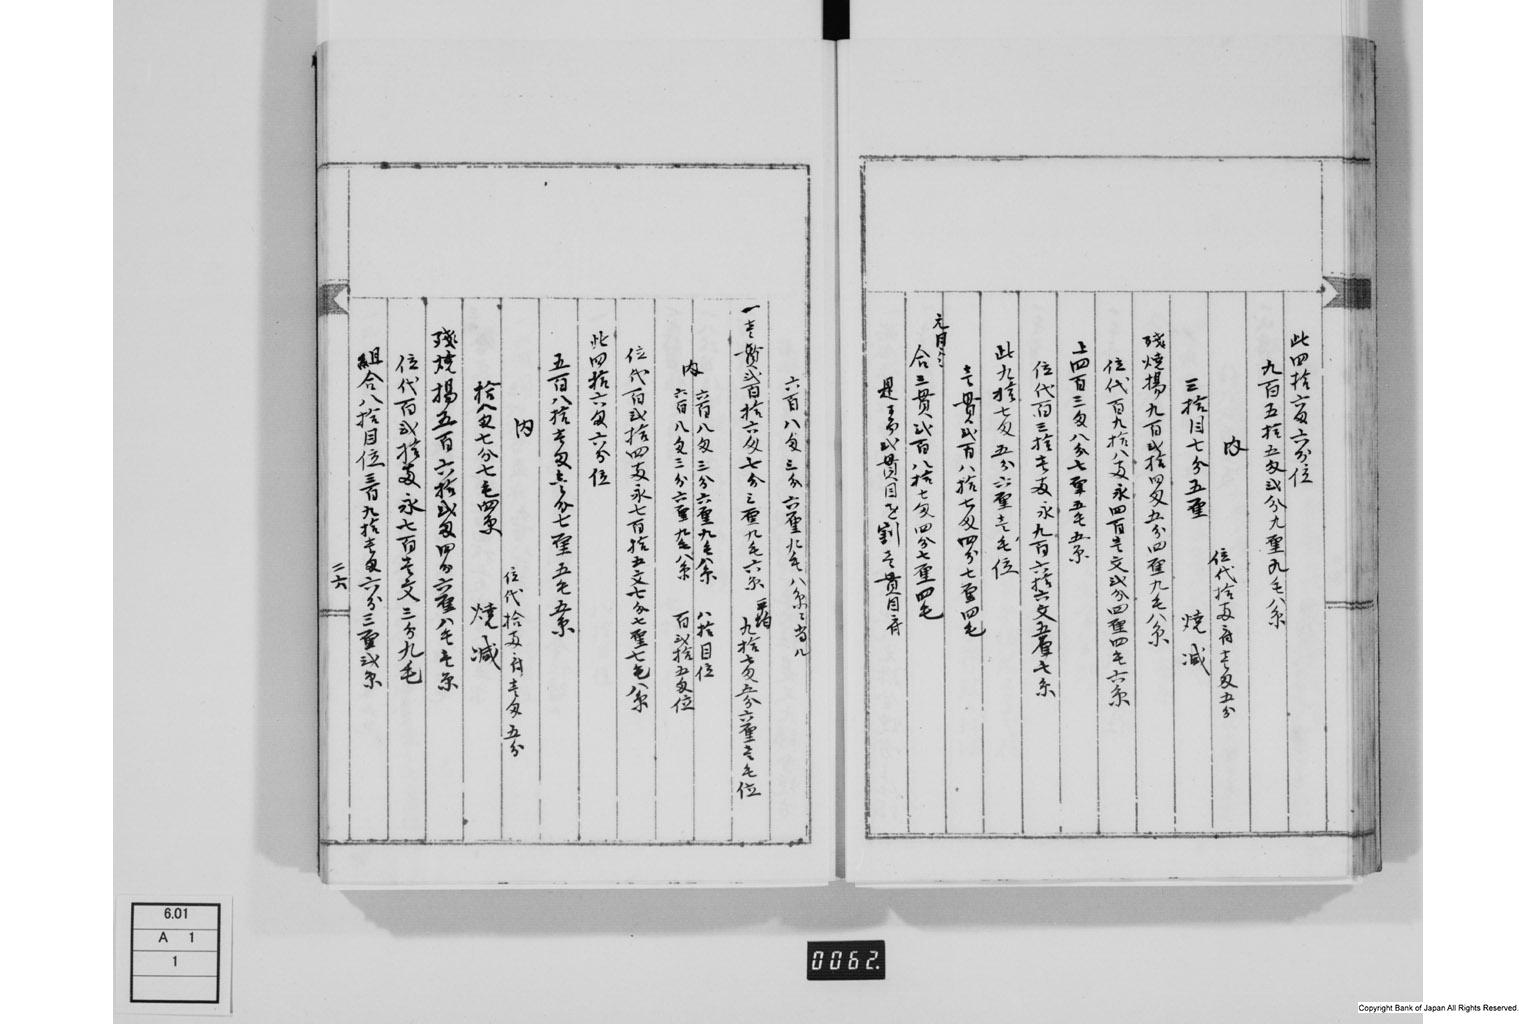 此四拾六匁六分位
九百五拾五匁弐分九厘九毛八糸
内
位代拾両ニ付壱匁五分
三拾目七分五厘　焼減
残焼揚九百弐拾四匁五分四厘九毛八糸
位代百九拾八両永四百壱文弐分四厘四毛六糸
上四百三匁八分七厘五毛五糸
位代百三拾壱両永九百六拾六文五厘七糸
此九拾七匁五分六厘壱毛位
壱貫弐百八拾七匁四分七厘四毛
元目合三貫弐百八拾七匁四分七厘四毛
是を弐貫目を割壱貫目ニ付
六百八匁三分六厘九毛八糸ニ当ル
一壱貫弐百拾六匁七分三厘九毛六糸 平均九拾七匁五分六厘壱毛位
内
六百八匁三分六厘九毛八糸　八拾目位
六百八匁三分六厘九毛八糸　百弐拾五匁位
位代百弐拾四両永七百拾五文七分七厘七毛八糸
此四拾六匁六分位
五百八拾壱匁壱分七厘五毛五糸
内
位代拾両ニ付壱匁五分
拾八匁七分七毛四糸　焼減
残焼揚五百六拾弐匁四分六厘八毛壱糸
位代百弐拾両永七百壱文三分九毛
組合八拾目位三百九拾壱匁六分三厘弐糸
二六
6.01
A 1
1
0062.
Copyright Bank of Japan All Rights Reserved.